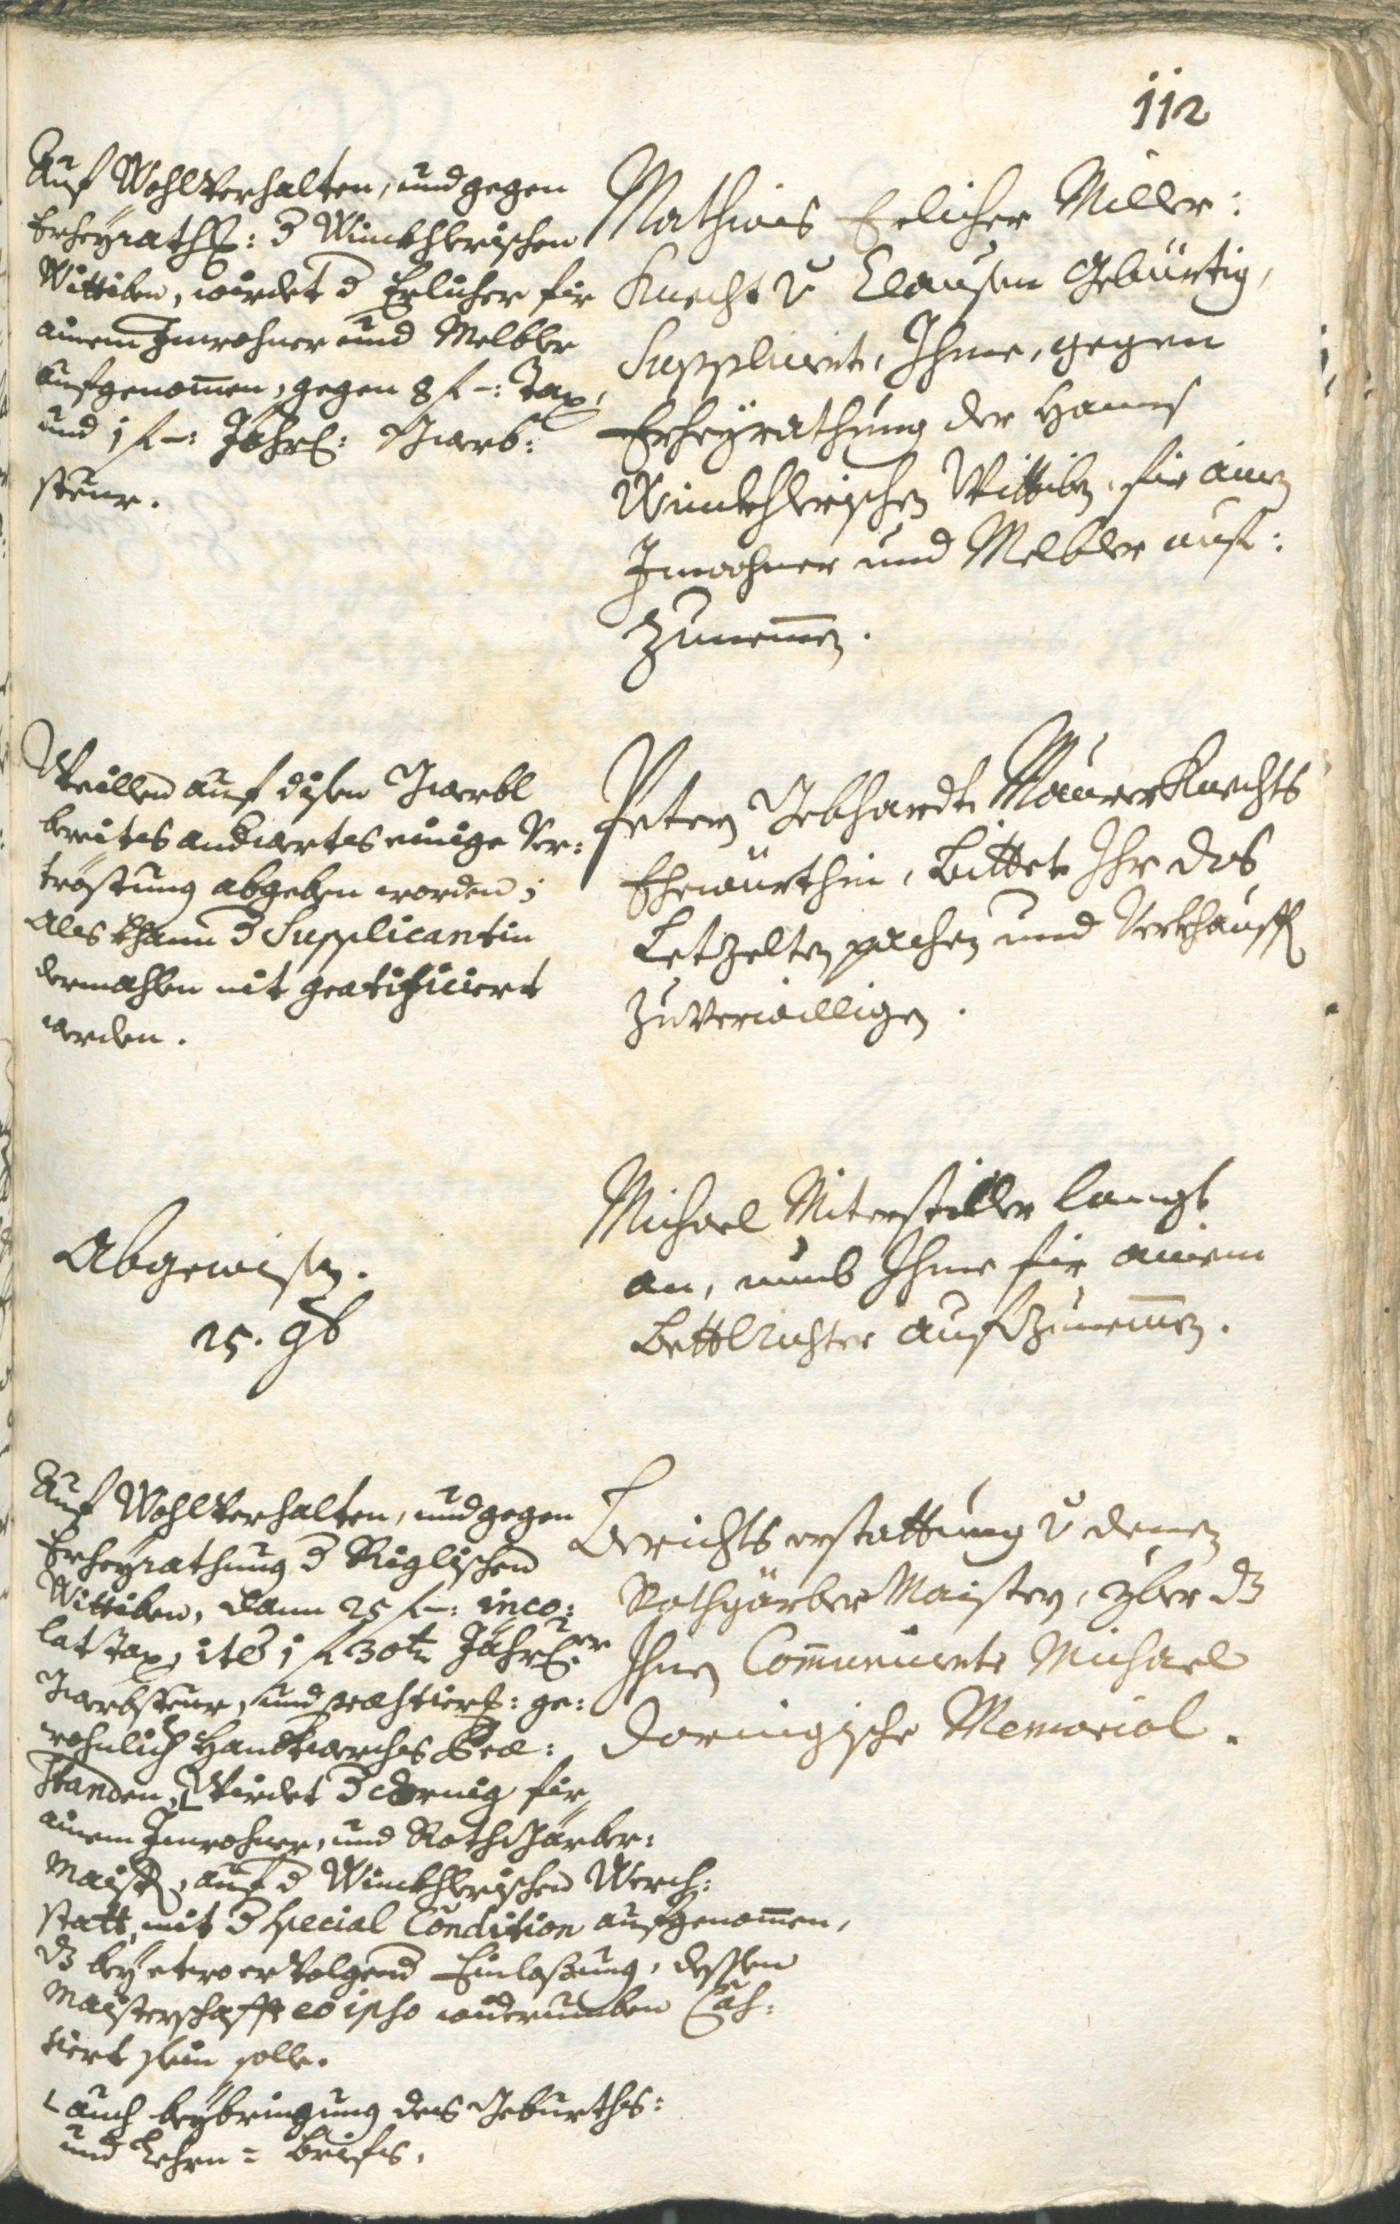 112
Auf Wohlverhalten, und gegen
Erheÿrathg: d Winckhlerischen
Wittiben, würdet d Erlicher für
ainem Inwohner und Melbler
aufgenom̄en, gegen 8 f —: Tax,
und 1 f —: Jährl: Gwerb:
steur.
Mathias Erlicher Miller:
Knecht v Clausen gebürtig,
Supplicirt, Ihme, gegen
Erheÿrathung der Hanns
Winckhlerischen Wittiben, für ainen
Inwohner und Melbler auf:
zunem̄en.
Weillen auf disen Gwerbl
bereites andwertes einige Ver:
tröstung abgeben worden;
Als khann d Supplicantin
dermahlen nit gratificiert
werden.
Petern Gebhardt Maurer Knechts
Ehewürthin, bittet Ihr das
Letzelten pachen und Verkhauffen
zuverwilligen.
Abgewisen.
25. gb
Michael Mitterstiller langt
an, umb Ihme für ainem
Bettlrichter aufzunem̄en.
Auf Wohlverhalten, und gegen
Erheÿrathung d Riglischen
Wittiben, dann 25 f —: inco:
lat Tax, itē 1 f 30 kr Jährl:er
Gwerbsteur, und praestierl: ge:
wohnlich Handtwerchs Prae:
standen, ⌊ Würdet d dornig für
ainem Inwohner, und Rothgärber:
Maistr, auf d Winckhlerischen Werch:
statt, mit d special Condition aufgenom̄en,
dz beÿ etwo ervolgend Einlassung, dessen
Maisterschafft eo ipso widerumben Cas:
siert sein solle.
⌊ auch beÿbringung des Geburths:
und Lehrn = briefs.
Berichts erstattung v denen
Rothgärber Maistern, yber dz
Ihnen Com̄unicirte Michael
Dorningische Memorial.